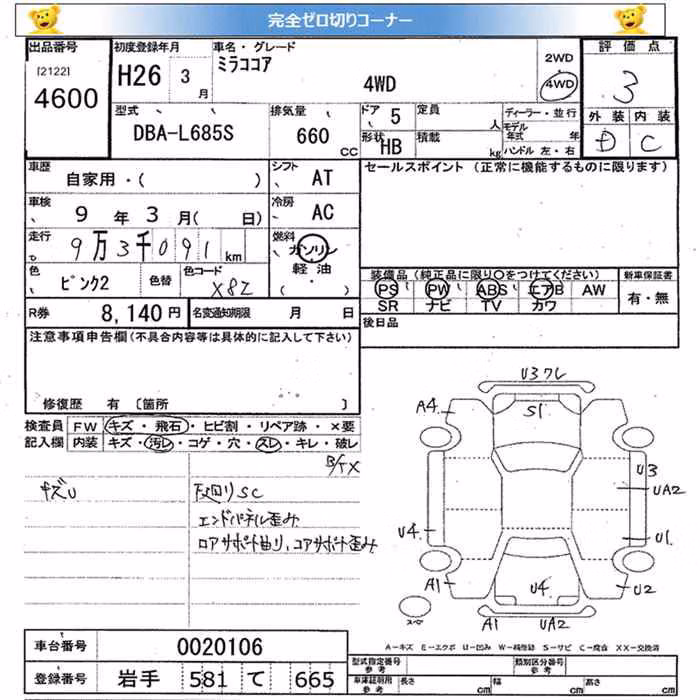 完全ゼロ切りコーナー
出品番号
[2122]
4600
初度登録年月
H26 3 月
車名・グレード
ミラココア
4WD
2WD
4WD
評価点
3
外装 内装
D C
型式
DBA-L685S
排気量
660 CC
ドア 5
形状 HB
定員 人
積載 kg
ディーラー・並行
モデル年式 年
ハンドル 左・右
車歴
自家用・( )
シフト AT
セールスポイント (正常に機能するものに限ります)
車検
9 年 3 月( 日)
冷房 AC
走行
9万3千091 km
燃料
ガソリン
軽油
( ・ )
色
ピンク2
色替
色コード
X82
装備品(純正品に限り〇をつけてください)
PS PW ABS エアB AW
SR ナビ TV カワ
新車保証書
有・無
R券 8,140 円
名変通知期限 月 日
後日品
注意事項申告欄(不具合内容等は具体的に記入して下さい)
修復歴 有 〔箇所 〕
検査員記入欄
FW キズ・飛石・ヒビ割・リペア跡・×要
内装 キズ・汚レ・コゲ・穴・スレ・キレ・破レ
キズU
下回りSC
エンドパネル歪み
ロアサポト曲り、コアサポト歪み
U3ワレ
A4 S1
U3
UA2
U4 U1
A1 U4 U2
スペ
A1 UA2
A-キズ E-エクボ U-凹み W-補修跡 S-サビ C-腐食 XX-交換済
車台番号 0020106
登録番号 岩手 581 て 665
型式指定番号 参考
類別区分番号 参考
車庫証明用 参考
長さ cm 幅 cm 高さ cm